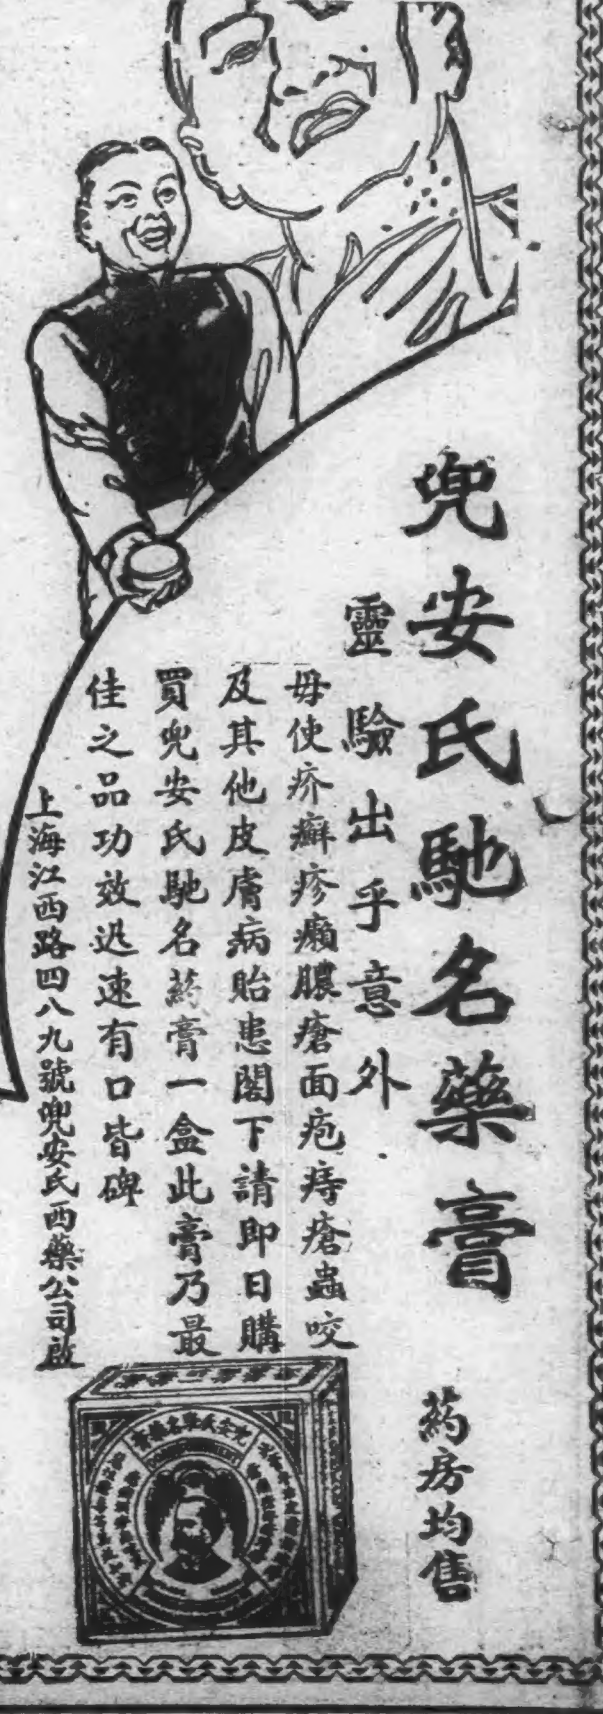 兜安氏馳名藥膏
藥房均售
靈驗出乎意外
毋使疥癬疹癩膿瘡面疱痔瘡蟲咬
及其他皮膚病貽患閣下請即日購
買兜安氏馳名藥膏一盒此膏乃最
佳之品功效迅速有口皆碑
上海江西路四八九號兜安氏西藥公司啟
兜安氏馳名藥膏